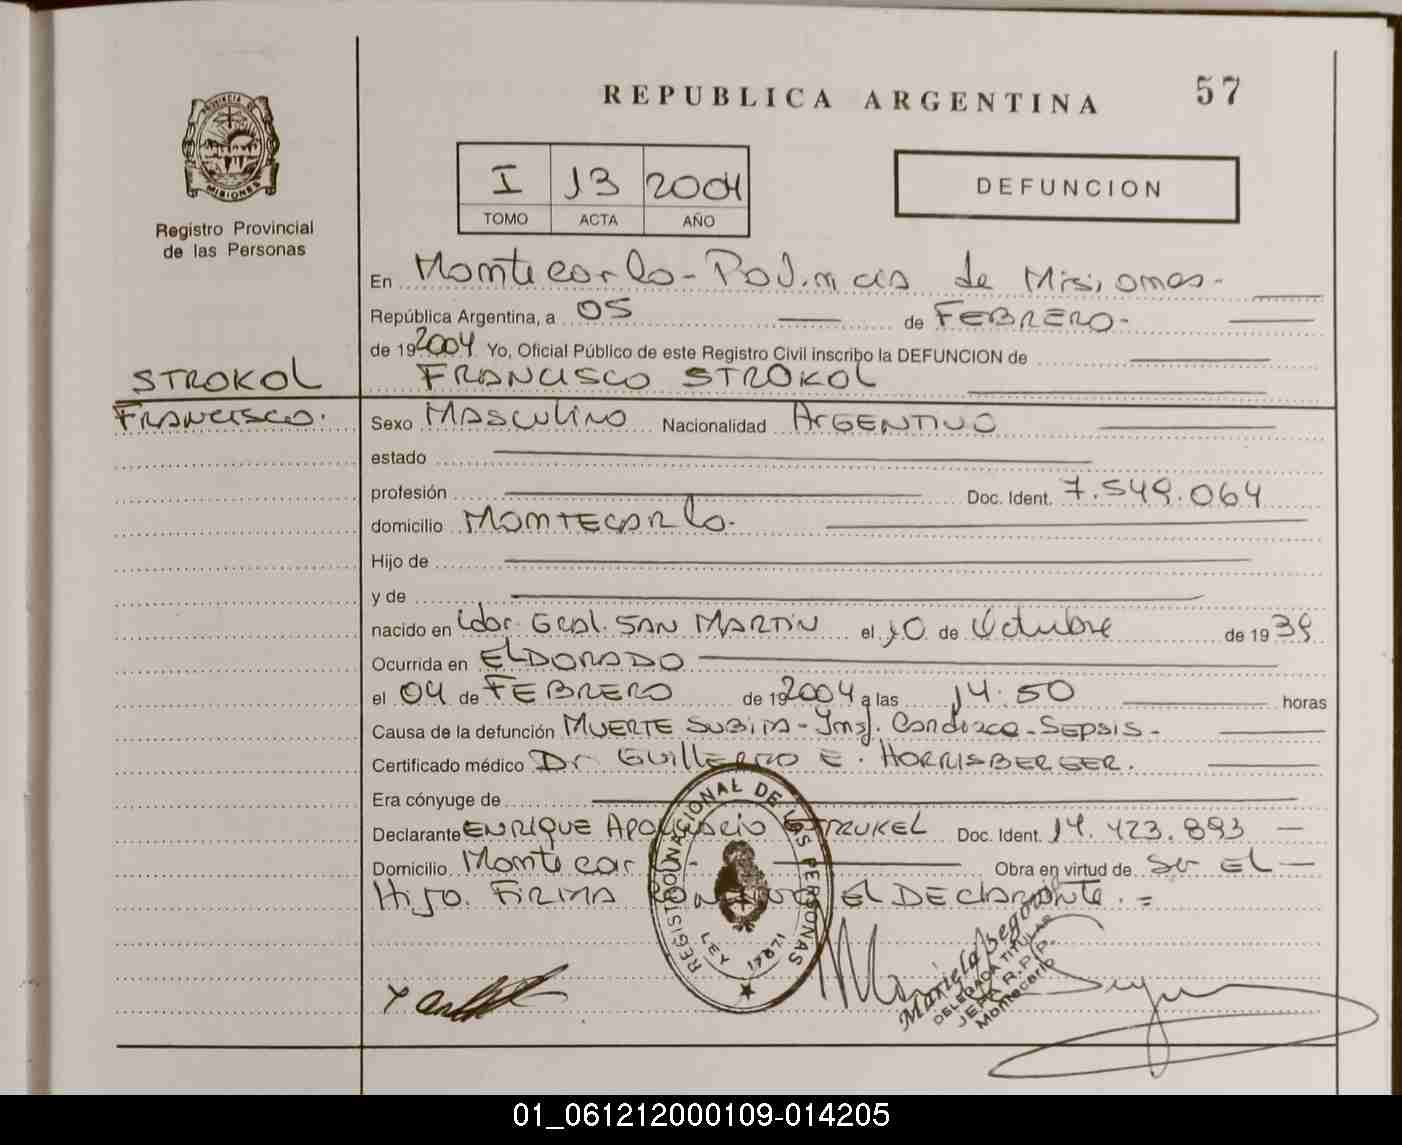 REPUBLICA ARGENTINA
57
PROVINCIA DE
MISIONES
Registro Provincial
de las Personas
I 13 2004
TOMO ACTA AÑO
DEFUNCION
En Montecarlo - Provincia de Misiones -
República Argentina, a 05 de FEBRERO -
de 19 2004 Yo, Oficial Público de este Registro Civil inscribo la DEFUNCION de
STROKOL
FRANCISCO STROKOL
FRANCISCO.
Sexo MASCULINO Nacionalidad ARGENTINO
estado
profesión Doc. Ident. 7.549.064
domicilio MONTECARLO.
Hijo de
y de
nacido en Ldor. GRAL. SAN MARTIN el 10 de Octubre de 19 39
Ocurrida en ELDORADO
el 04 de FEBRERO de 19 2004 a las 14:50 horas
Causa de la defunción MUERTE SUBITA - Insf. Cardiaca - SEPSIS -
Certificado médico Dr. GUILLERMO E. HORRISBERGER.
Era cónyuge de
Declarante ENRIQUE STRUKEL Doc. Ident. 14.423.893
Domicilio Montecar - Obra en virtud de Ser EL
HIJO. FIRMA EL DECLARANTE. =
REGISTRO NACIONAL DE LAS PERSONAS
LEY 17671
Mariela Segovia
DELEGADA TITULAR
R.P.P.
Montecarlo
01_061212000109-014205